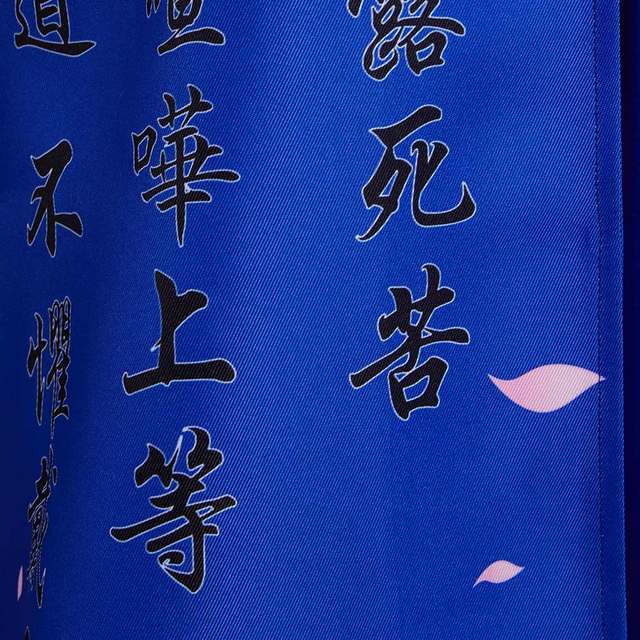 露死苦
喧嘩上等
道不懼